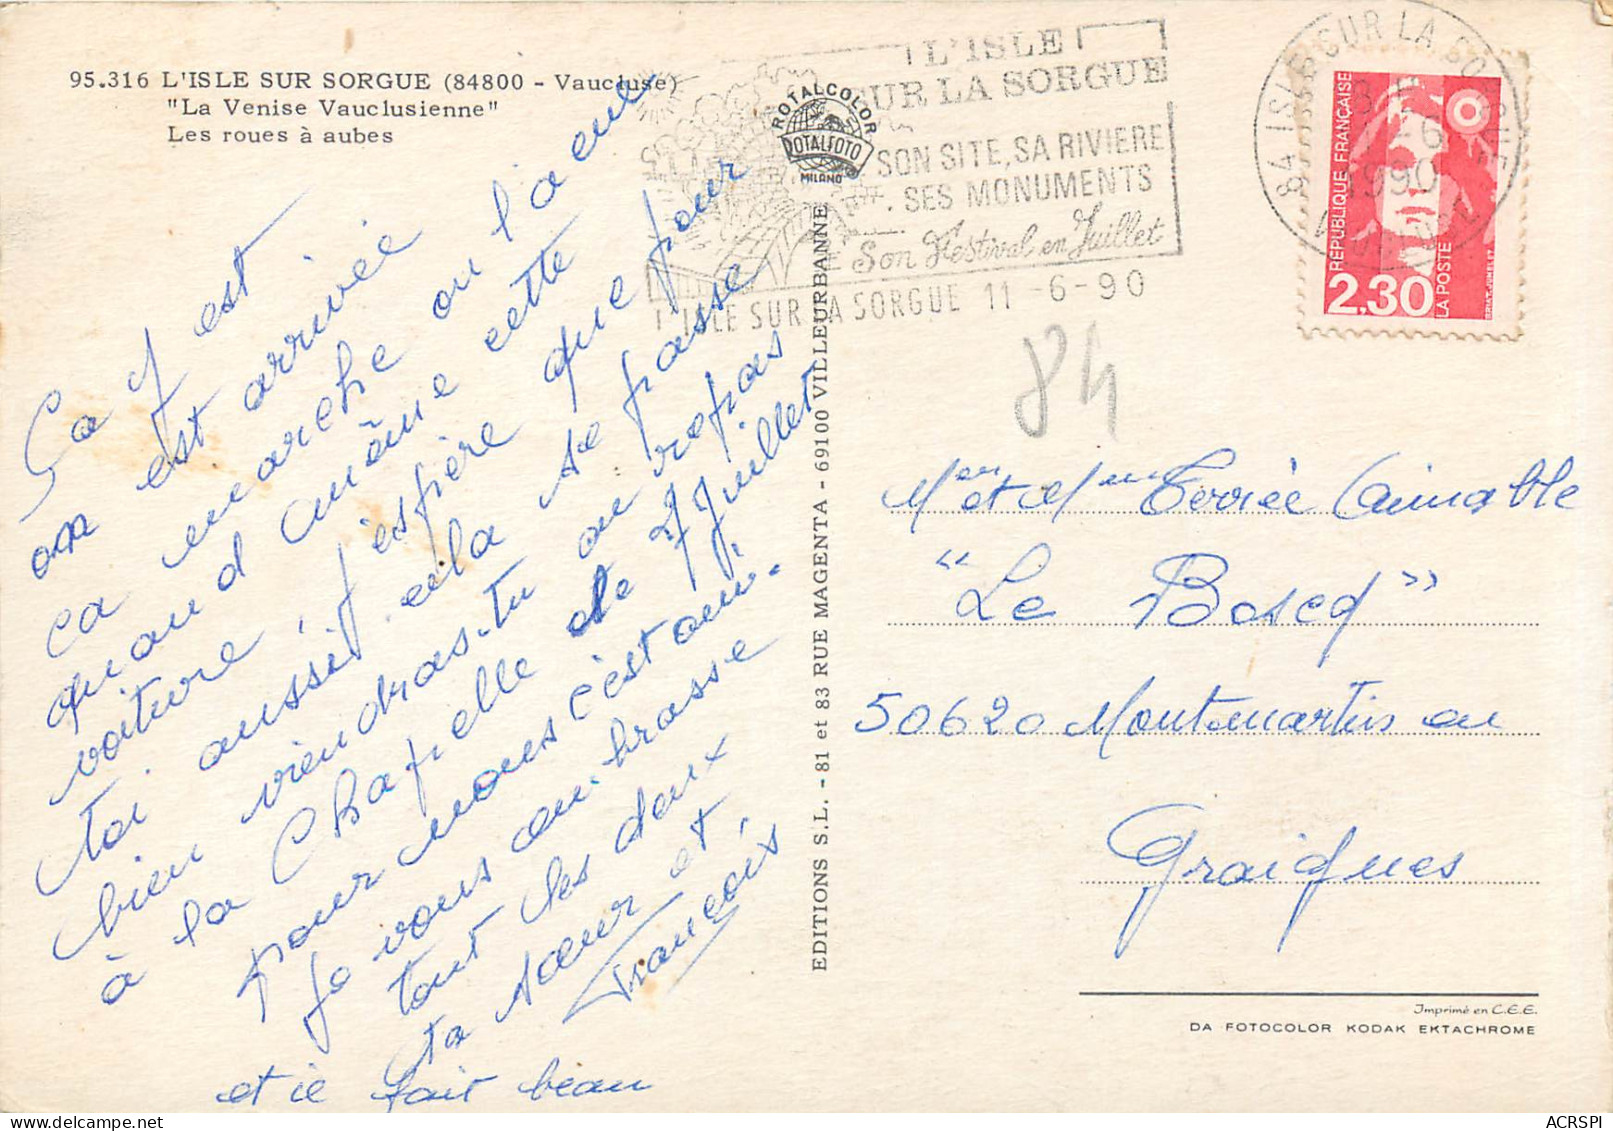 95.316 L'ISLE SUR SORGUE (84800 - Vaucluse)
"La Venise Vauclusienne"
Les roues à aubes
Ça y est
on est arrivée
ça marche ou l'a eue
quand même cette
voiture, j'espère que pour
toi aussi cela se passe
bien viendras-tu au repas
à la Chapelle le 7 Juillet
pour nous c'est oui.
Je vous embrasse
tout les deux
ta sœur et
François
et il fait beau
ROTALCOLOR
ROTALFOTO
MILANO
L'ISLE
SUR LA SORGUE
SON SITE, SA RIVIERE
SES MONUMENTS
Son Festival en Juillet
L'ISLE SUR LA SORGUE 11-6-90
84 ISLE SUR LA SORGUE
1990
REPUBLIQUE FRANÇAISE
2,30
LA POSTE
84
EDITIONS S.L. - 81 et 83 RUE MAGENTA - 69100 VILLEURBANNE
Mr et Mme Aimable
"Le Boscq"
50620 Montmartin en
Graignes
Imprimé en C.E.E.
DA FOTOCOLOR KODAK EKTACHROME
ACRSPI